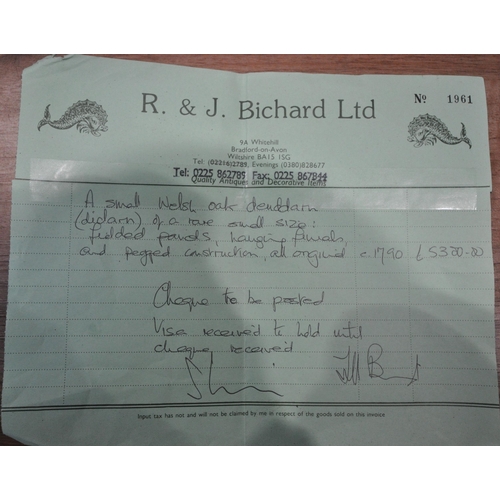 R. & J. Bichard Ltd
Nº 1961
9A Whitehill
Bradford-on-Avon
Wiltshire BA15 1SG
Tel: (02216)2789, Evenings (0380)828677
Tel: 0225 862789 Fax: 0225 867844
Quality Antiques and Decorative Items
A small Welsh oak
(didarn) of a rare small size:
fielded panels, hanging finials,
and pegged construction, all original c.1790 £5300-00
Cheque to be posted
Visa received to hold until
cheque received
Input tax has not and will not be claimed by me in respect of the goods sold on this invoice